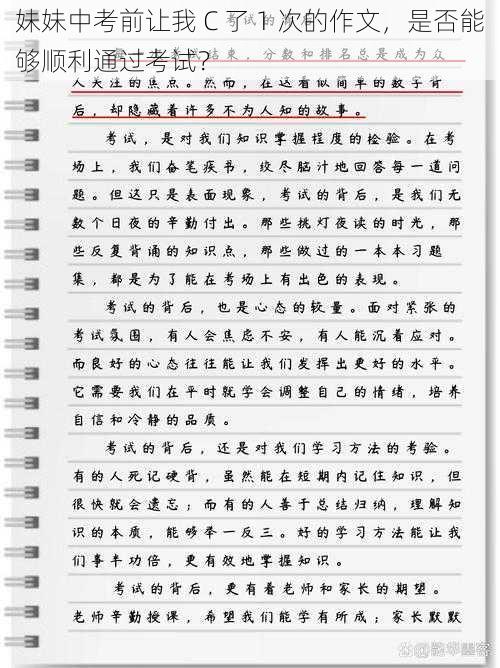 妹妹中考前让我 C 了 1 次的作文，是否能
够顺利通过考试？
人关注的焦点。然而，在这看似简单的数字背
后，却隐藏着许多不为人知的故事。
考试，是对我们知识掌握程度的检验。在考
场上，我们奋笔疾书，绞尽脑汁地回答每一道问
题。但这只是表面现象，考试的背后，是我们无
数个日夜的辛勤付出。那些挑灯夜读的时光，那
些反复背诵的知识点，那些做过的一本本习题
集，都是为了能在考场上有出色的表现。
考试的背后，也是心态的较量。面对紧张的
考试氛围，有人会焦虑不安，有人能沉着应对。
而良好的心态往往能让我们发挥出更好的水平。
它需要我们在平时就学会调整自己的情绪，培养
自信和冷静的品质。
考试的背后，还是对我们学习方法的考验。
有的人死记硬背，虽然能在短期内记住知识，但
很快就会遗忘；而有的人善于总结归纳，理解知
识的本质，能够举一反三。好的学习方法能让我
们事半功倍，更有效地掌握知识。
考试的背后，更有着老师和家长的期望。
老师辛勤授课，希望我们能学有所成；家长默默